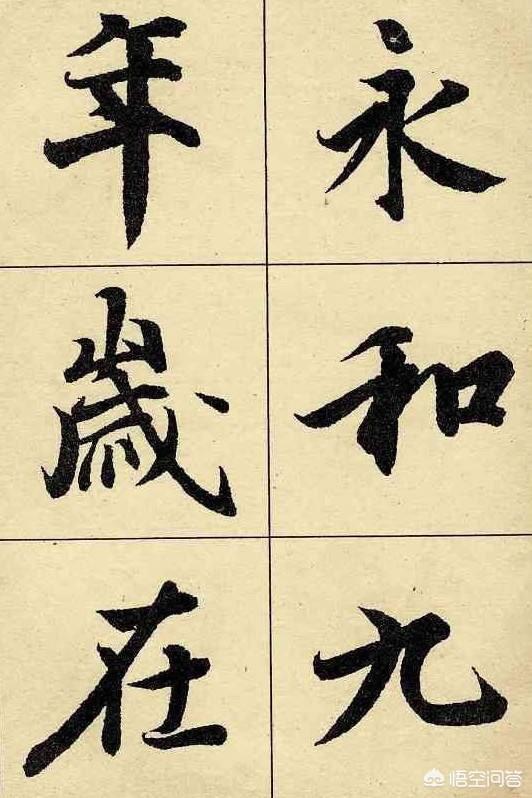 永和九
年歲在
悟空问答